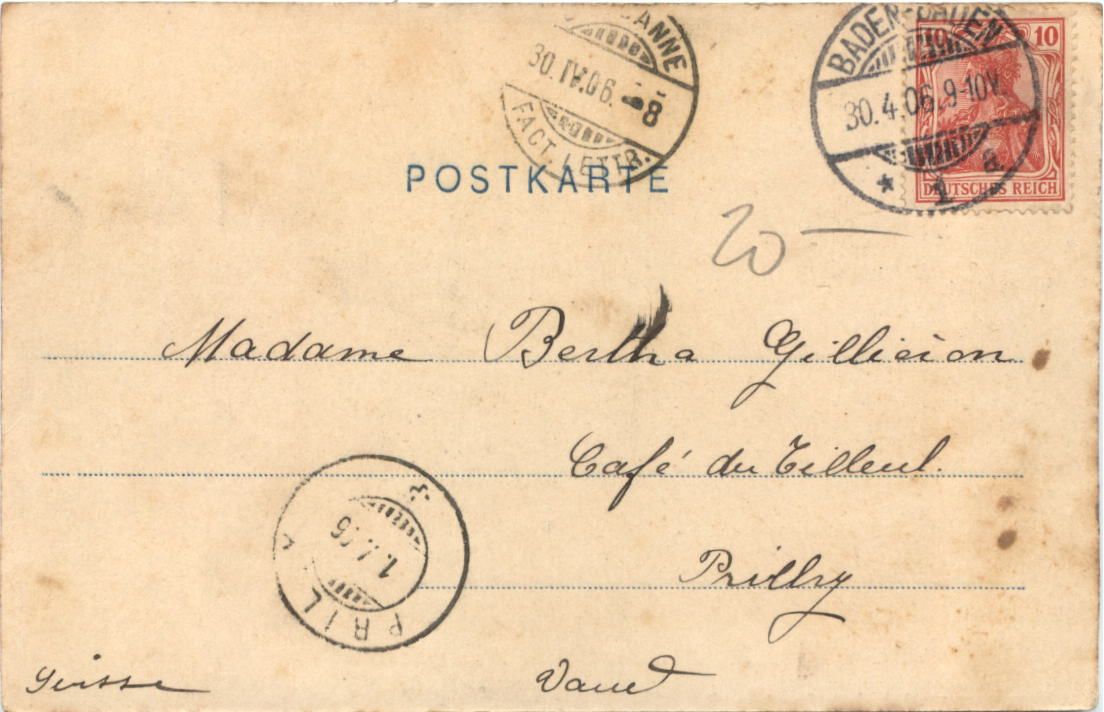 LAUSANNE
30.IV.06. -8
FACT. LETTR.
BADEN-BADEN
30.4.06.9-10V.
* 1 a
10 10
DEUTSCHES REICH
POSTKARTE
20 —
Madame Bertha Gilliéron
Café du Tilleul.
Prilly
Suisse Vaud
PRILLY
1.V.06